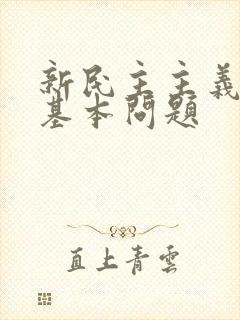 新民主主義
基本問題
直上青雲